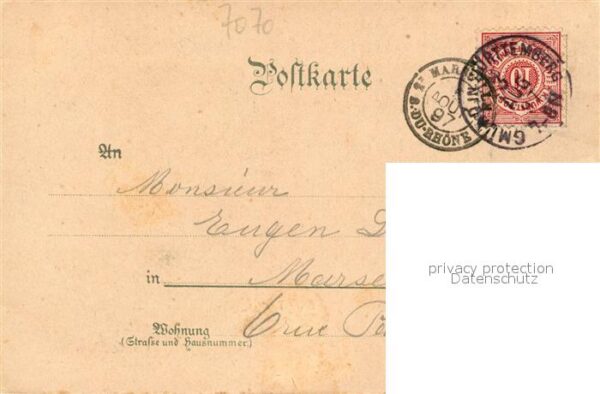 7070
Postkarte
MAR
B.-DU-RHÔNE
97
GMÜND IN WÜRTTEMBERG
10
An
Monsieur
Eugen
in Marse
Wohnung
(Straße und Hausnummer.)
privacy protection
Datenschutz